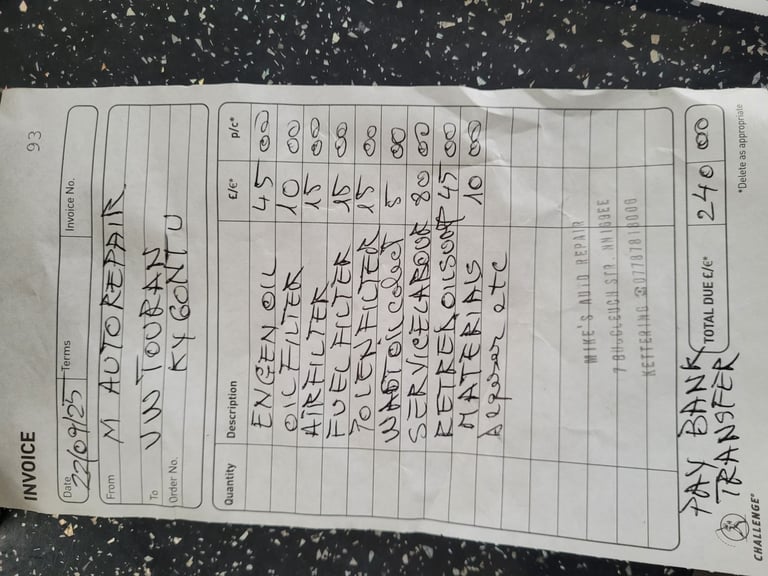 93
INVOICE
Date 22/09/25 Terms Invoice No.
From M AUTOREPAIR
To VW TOURAN
Order No. KY60NTU
Quantity Description £/€* p/c*
ENGEN OIL 45 00
OIL FILTER 10 00
AIRFILTER 15 00
FUEL FILTER 15 00
POLENFILTER 15 00
WASTOIL 5 00
SERVICELABOUR 80 00
OILSUMP 45 00
MATERIALS 10 00
etc
MIKE'S AUTO REPAIR
7 BUCCLEUCH STR. NN169EE
KETTERING
PAY BANK TRANSFER
TOTAL DUE £/€* 240 00
*Delete as appropriate
CHALLENGE®